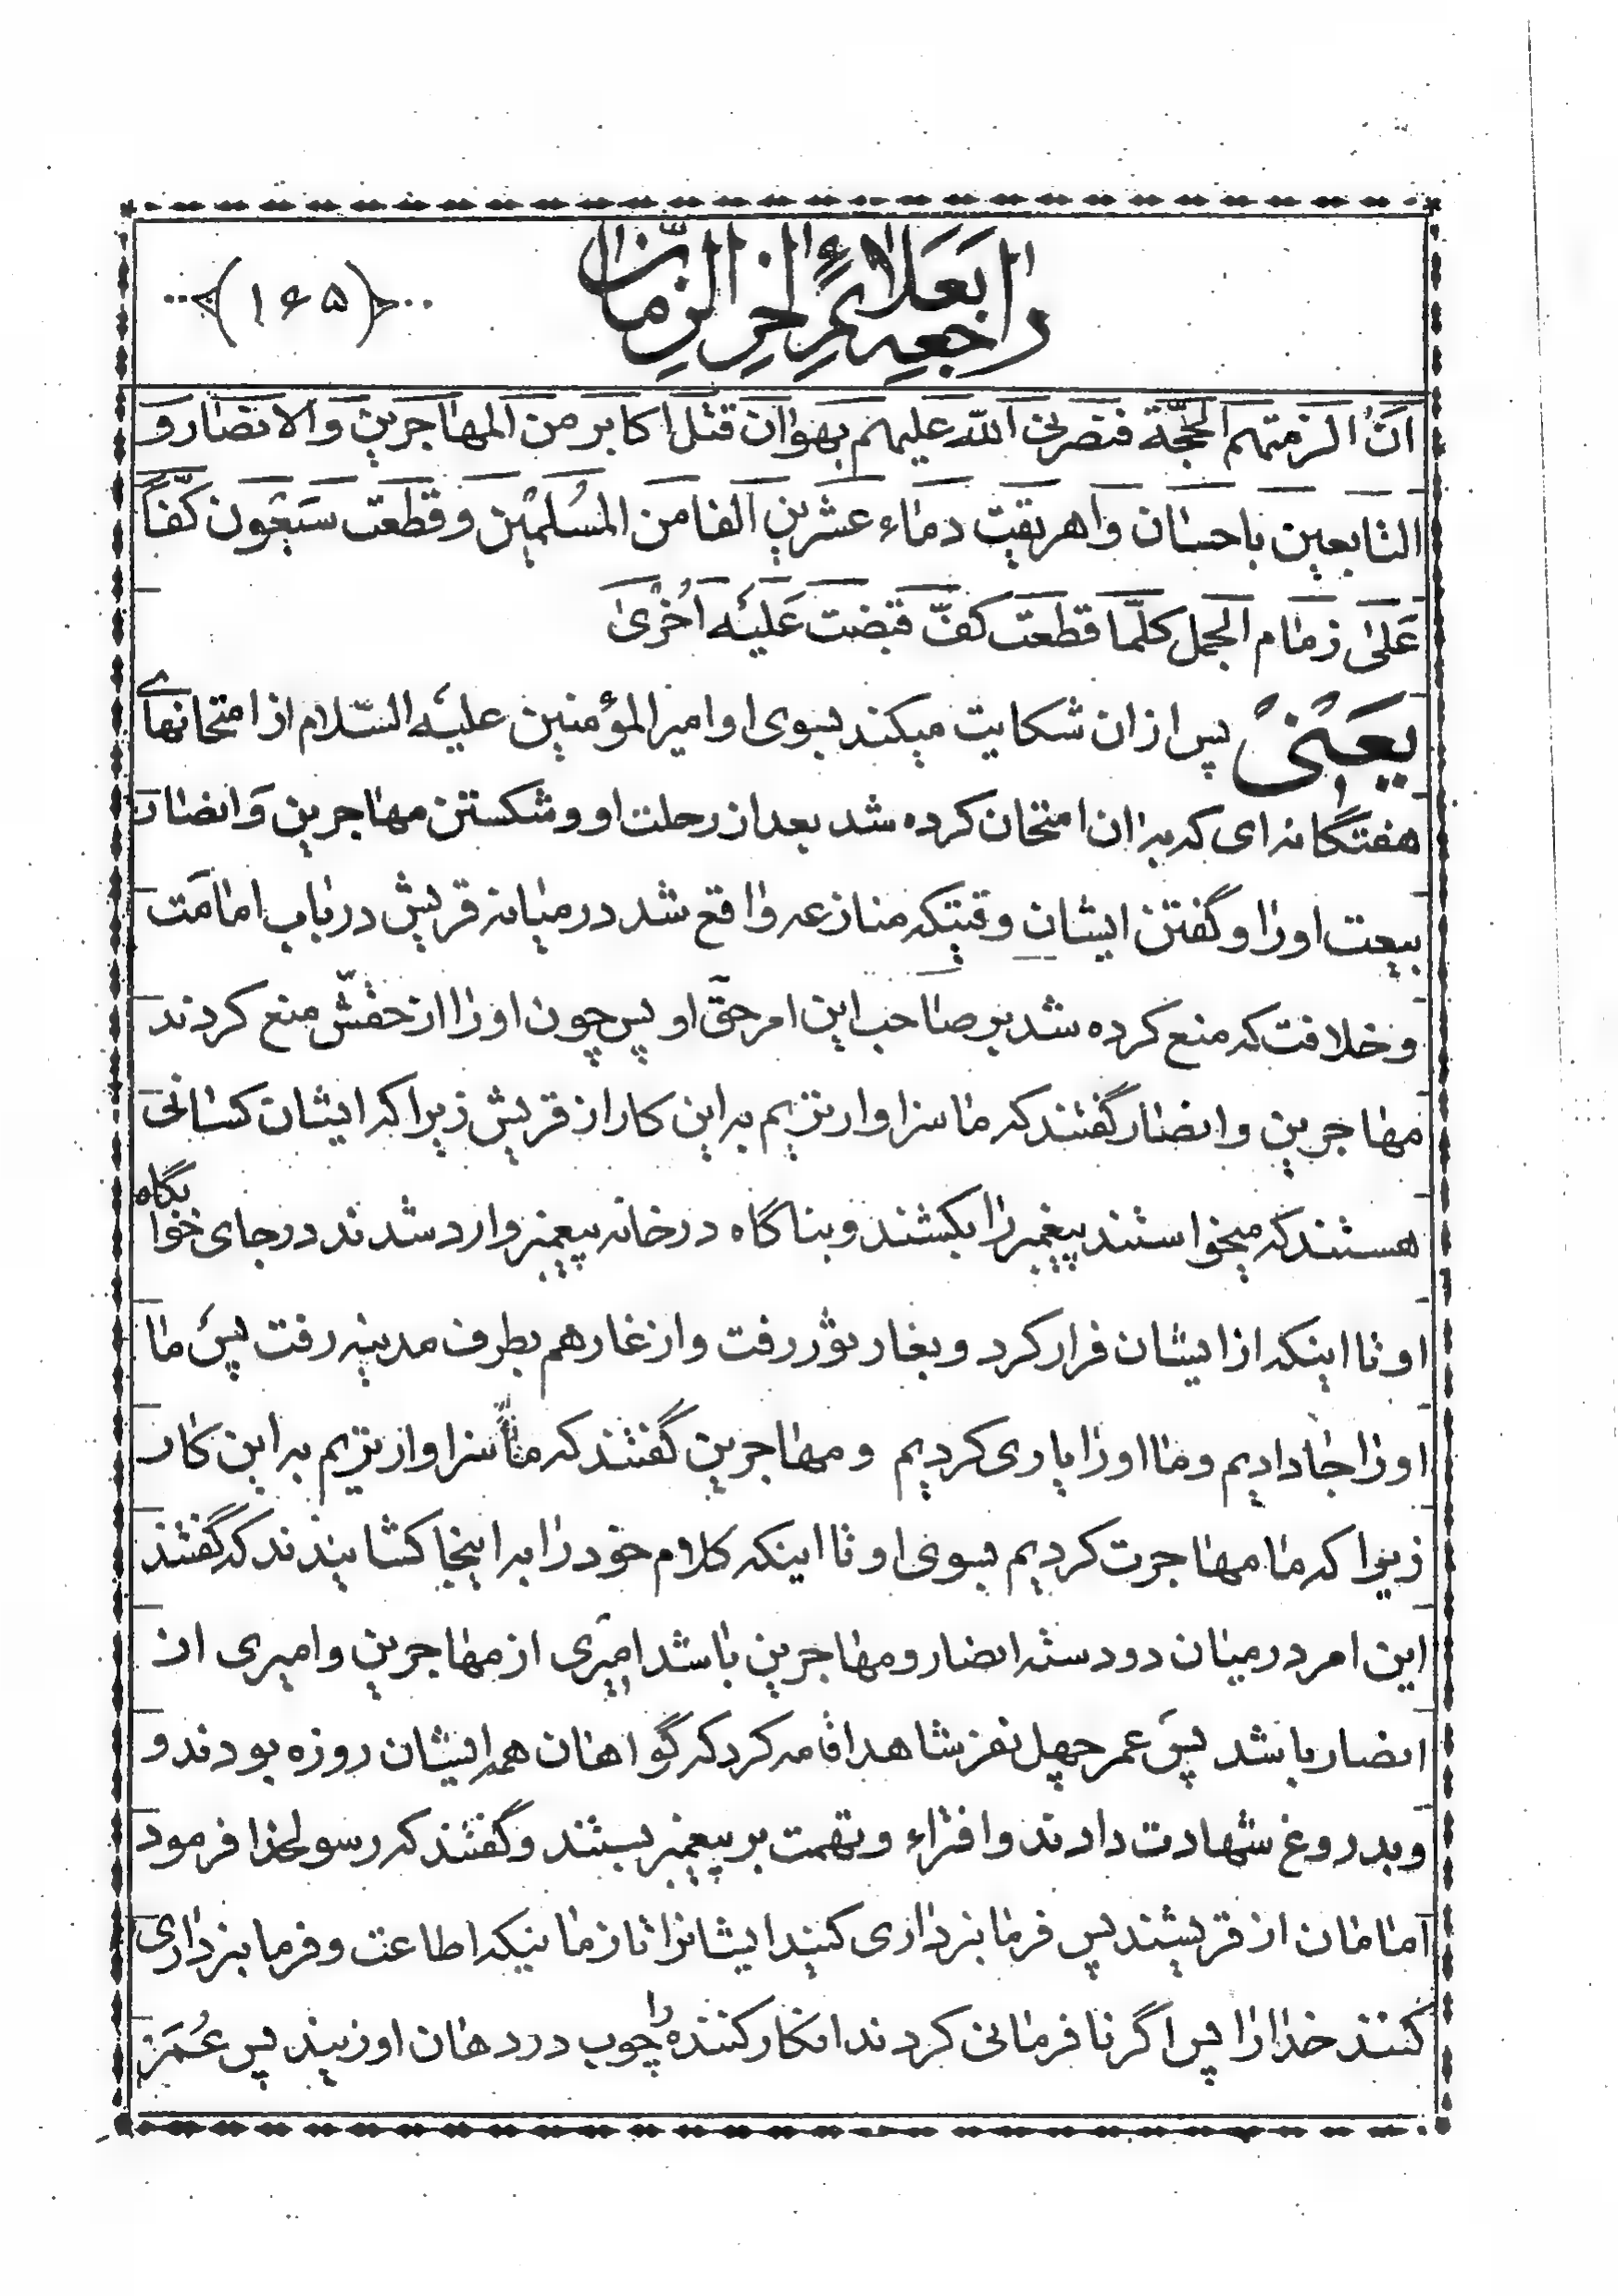 راجعه بعلائم اخر الزمان
(۱۶۵)
انّ الزمتهم الحجّة فنصرنی الله علیهم بهوان قتل اکابر من المهاجرین والانصار و
التابعین باحسان واهریقت دماء عشرین الفا من المسلمین وقطعت سبعون کفّاً
علی زمام الجمل کلّما قطعت کفّ قبضت علیه اخری
یعنی پس از ان شکایت میکند بسوی او امیر المؤمنین علیه السّلام از امتحانهای
هفتگانه ای که به ان امتحان کرده شد بعد از رحلت او و شکستن مهاجرین و انصار
بیعت او را و گفتن ایشان وقتیکه منازعه واقع شد در میانه قریش در باب امامت
و خلافت که منع کرده شد بر صاحب این امر حقّ او پس چون او را از حقّش منع کردند
مهاجرین و انصار گفتند که ما سزاوارتریم به این کار از قریش زیرا که ایشان کسانی
هستند که میخواستند پیغمبر را بکشند و بناگاه در خانه پیغمبر وارد شدند در جای خوابگاه
او تا اینکه از ایشان فرار کرد و بغار ثور رفت و از غار هم بطرف مدینه رفت پس ما
او را جا دادیم و ما او را یاری کردیم و مهاجرین گفتند که ما سزاوارتریم به این کار
زیرا که ما مهاجرت کردیم بسوی او تا اینکه کلام خود را به اینجا کشانیدند که گفتند
این امر در میان دو دسته انصار و مهاجرین باشد امیری از مهاجرین و امیری از
انصار باشد پس عمر چهل نفر شاهد اقامه کرد که گواهان همه ایشان روزه بودند و
و بدروغ شهادت دادند و افتراء و تهمت بر پیغمبر بستند و گفتند که رسولخدا فرمود
امامان از قریشند پس فرمانبرداری کنید ایشانرا تا زمانیکه اطاعت و فرمانبرداری
کنند خدا را پس اگر نافرمانی کردند انکار کننده را چوب در دهان او زنید پس عمر